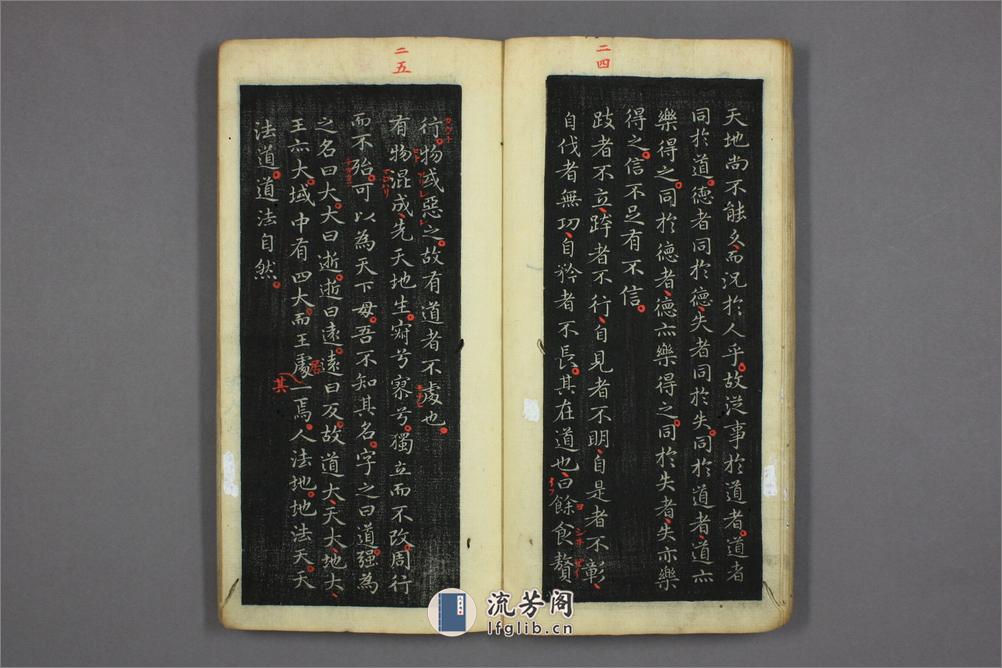 二四
天地尚不能久而況於人乎故從事於道者道者
同於道德者同於德失者同於失同於道者道亦
樂得之同於德者德亦樂得之同於失者失亦樂
得之信不足有不信
跂者不立跨者不行自見者不明自是者不彰
自伐者無功自矜者不長其在道也曰餘食贅
二五
行物或惡之故有道者不處也
有物混成先天地生寂兮寥兮獨立而不改周行
而不殆可以為天下母吾不知其名字之曰道强為
之名曰大大曰逝逝曰遠遠曰反故道大天大地大
王亦大域中有四大而王處一焉人法地地法天天
法道道法自然
居
其
流芳阁
lfglib.cn